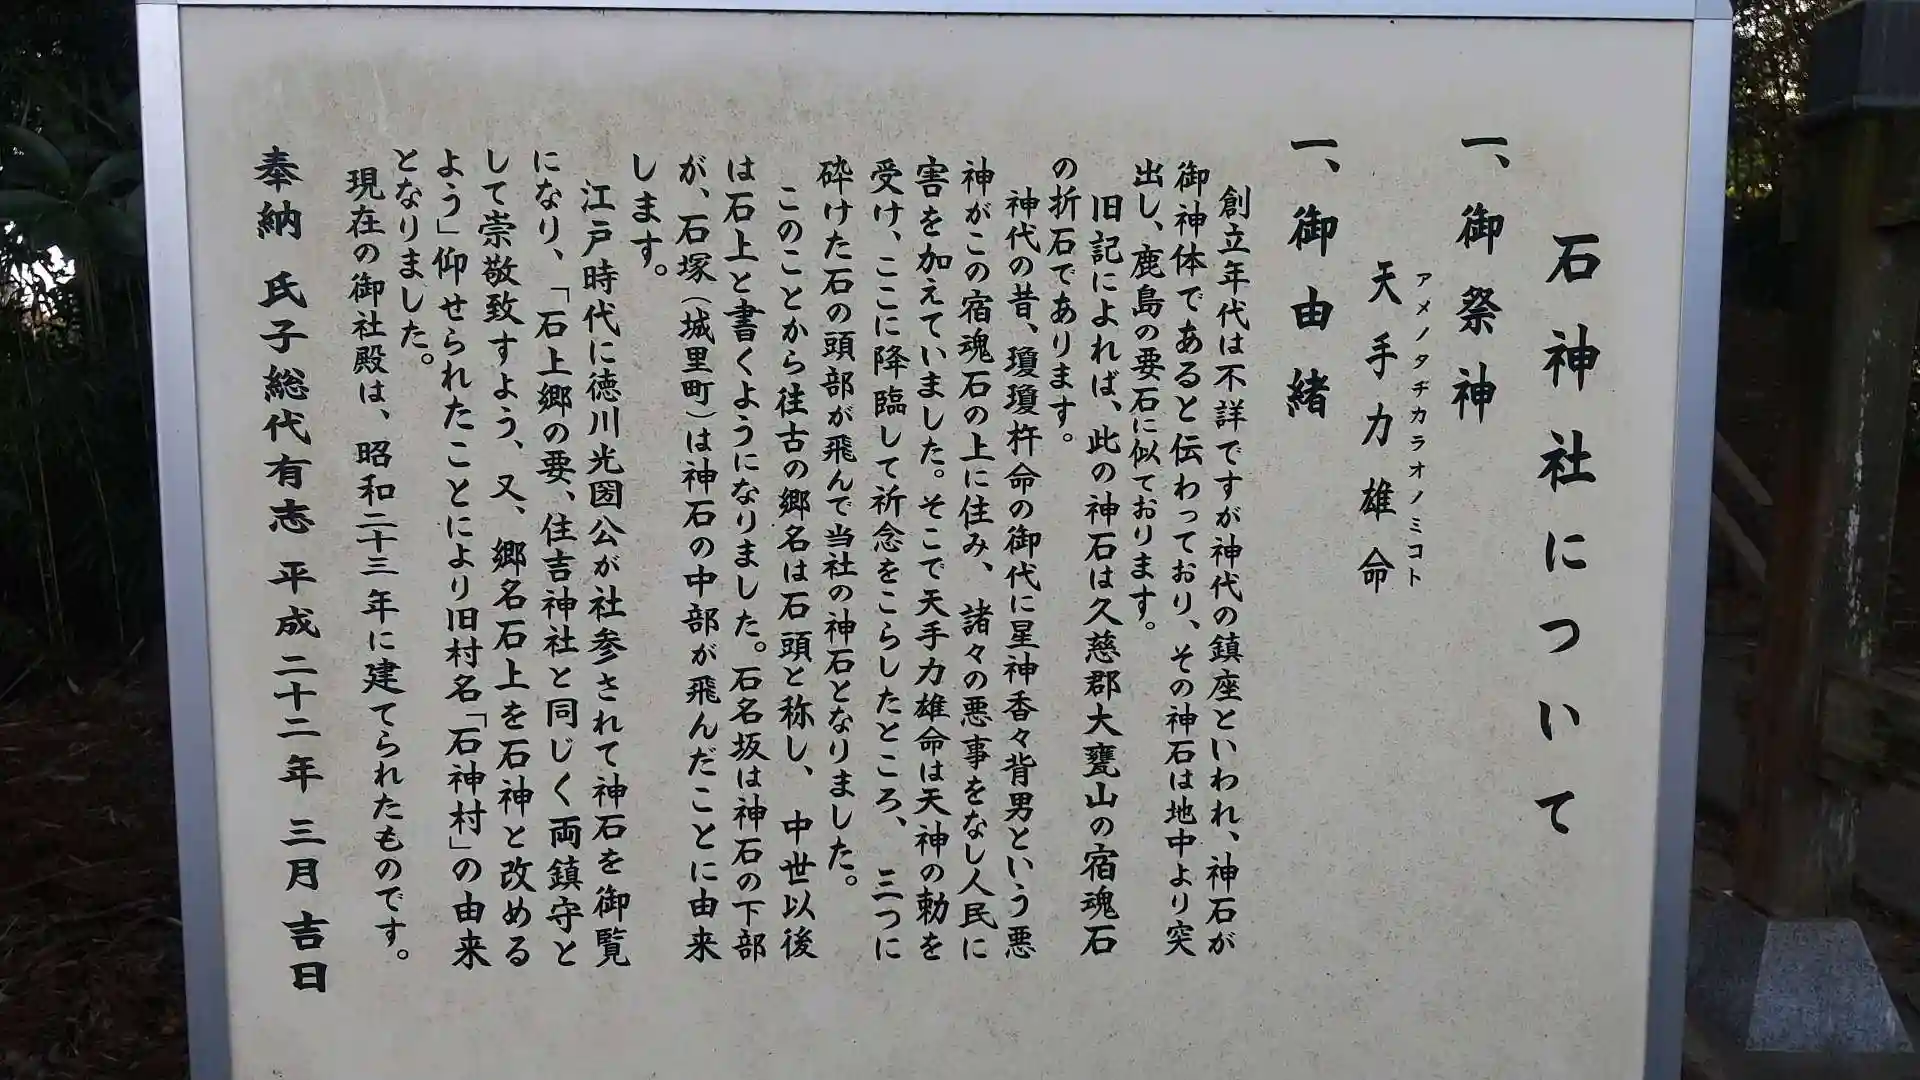 石神社について
一、御祭神
アメノタチカラオノミコト
天手力雄命
一、御由緒
創立年代は不詳ですが神代の鎮座といわれ、神石が
御神体であると伝わっており、その神石は地中より突
出し、鹿島の要石に似ております。
旧記によれば、此の神石は久慈郡大甕山の宿魂石
の折石であります。
神代の昔、瓊瓊杵命の御代に星神香々背男という悪
神がこの宿魂石の上に住み、諸々の悪事をなし人民に
害を加えていました。そこで天手力雄命は天神の勅を
受け、ここに降臨して祈念をこらしたところ、三つに
砕けた石の頭部が飛んで当社の神石となりました。
このことから往古の郷名は石頭と称し、中世以後
は石上と書くようになりました。石名坂は神石の下部
が、石塚(城里町)は神石の中部が飛んだことに由来
します。
江戸時代に徳川光圀公が社参されて神石を御覧
になり、「石上郷の要、住吉神社と同じく両鎮守と
して崇敬致すよう、又、郷名石上を石神と改める
よう」仰せられたことにより旧村名「石神村」の由来
となりました。
現在の御社殿は、昭和二十三年に建てられたものです。
奉納 氏子総代有志 平成二十二年 三月吉日